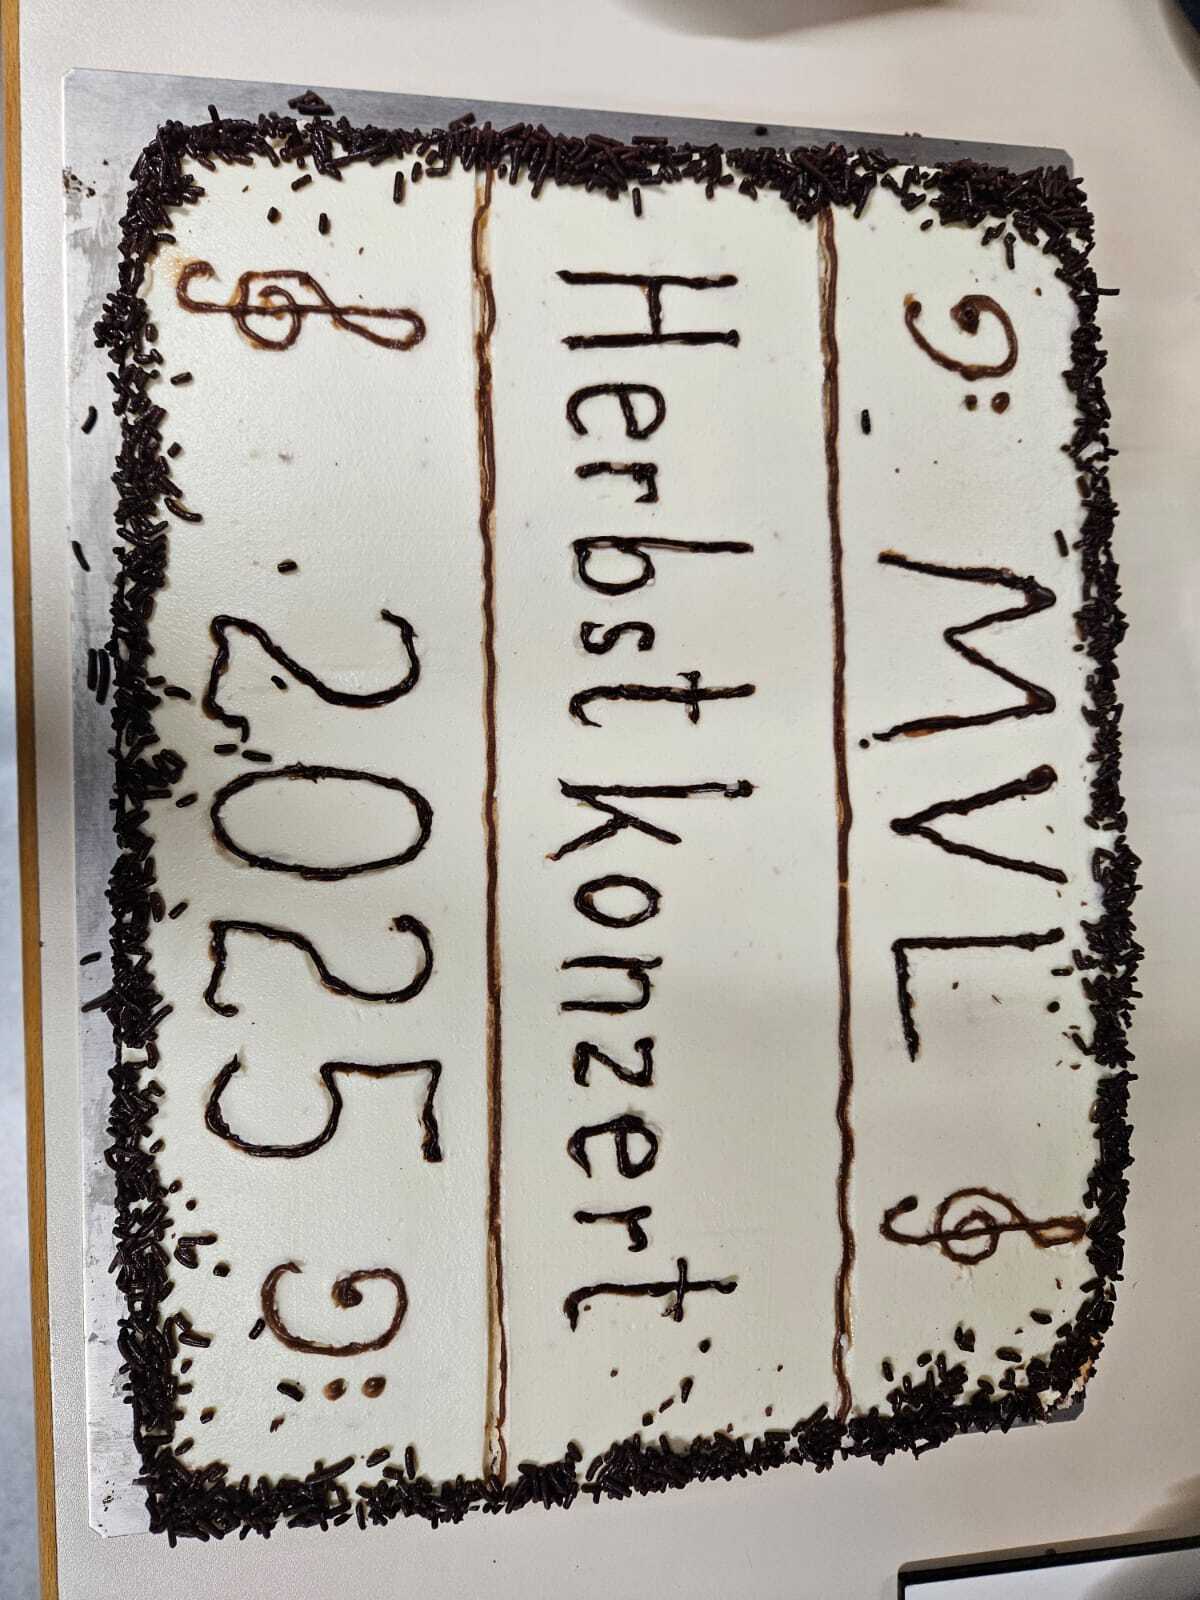 MVL
Herbstkonzert
2025